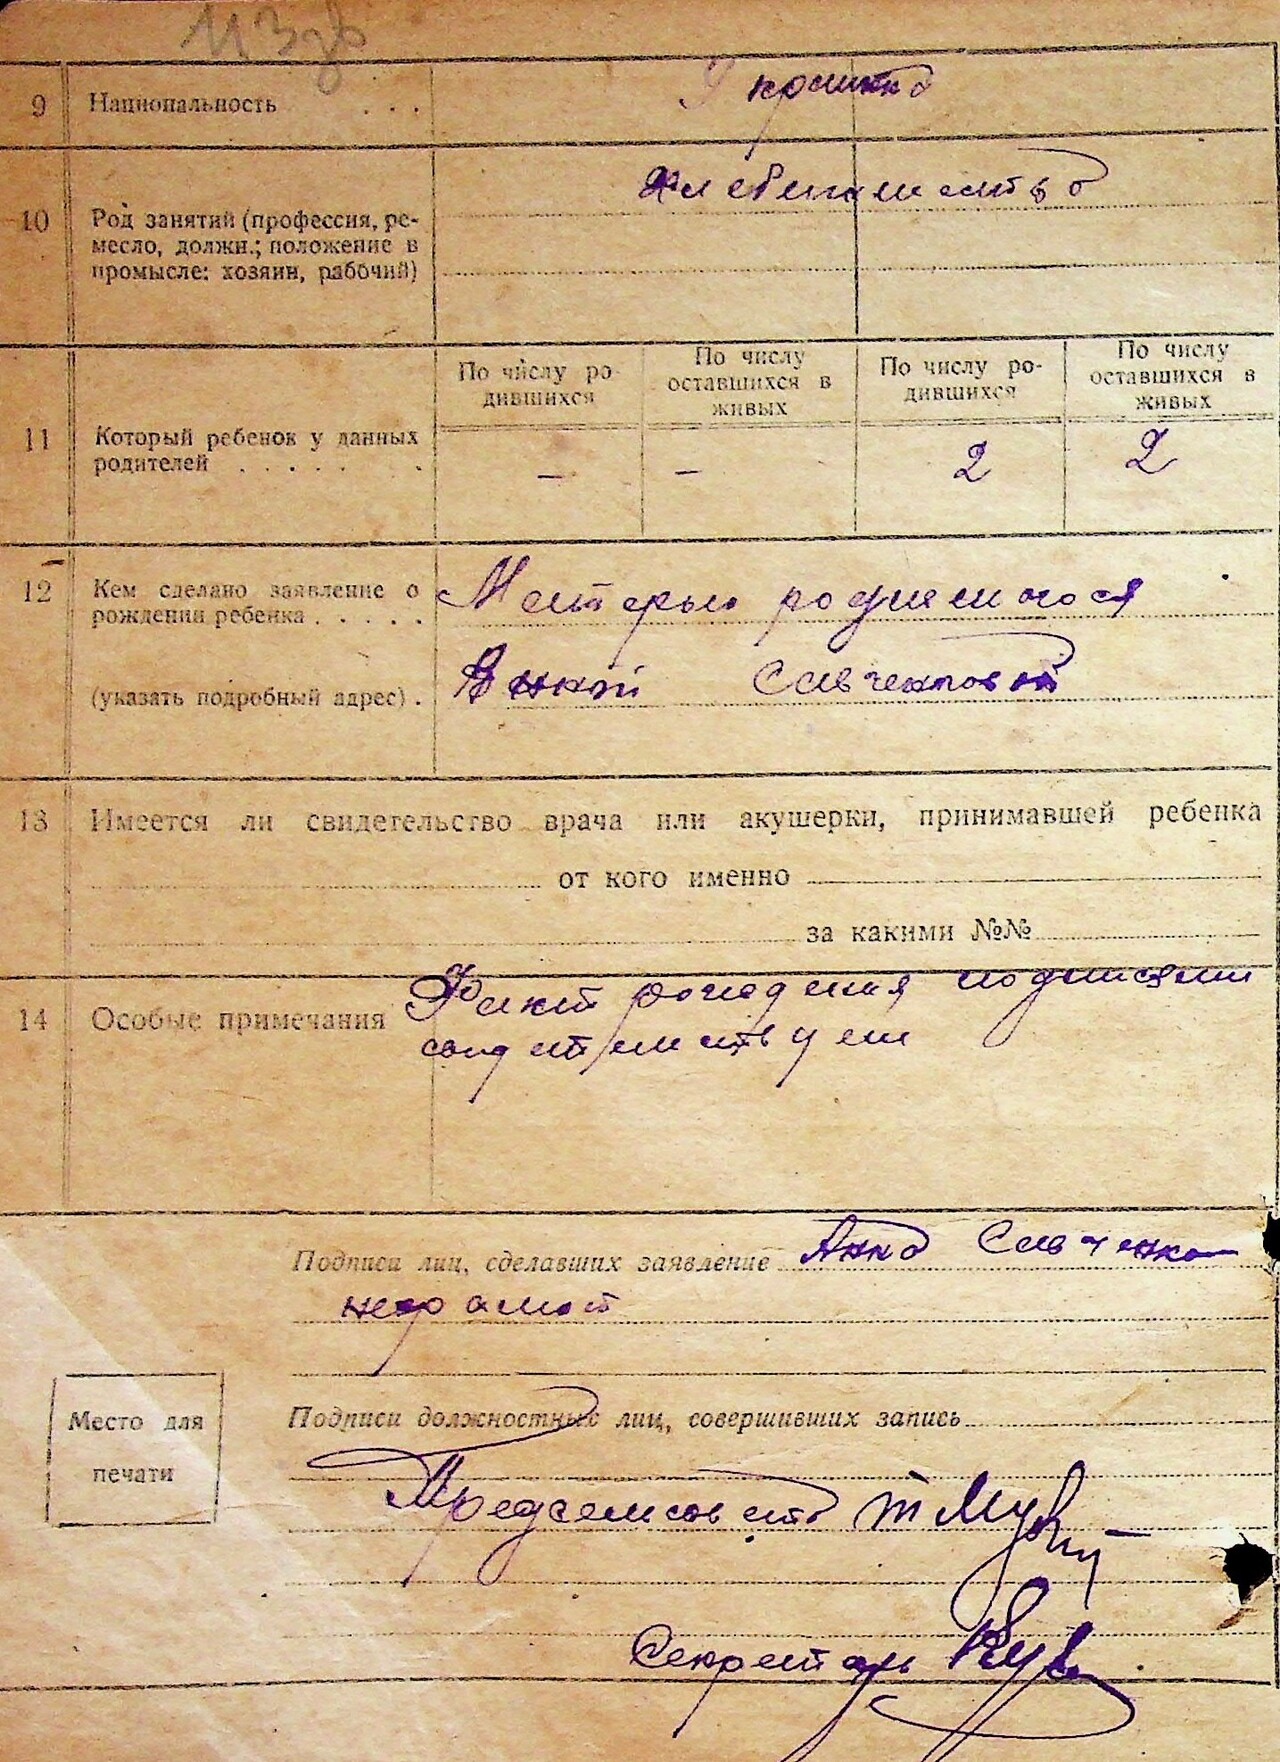 9 Национальность . . . Украинка
Хлебопашество
10 Род занятий (профессия, ре-
месло, должн.; положение в
промысле: хозяин, рабочий)
По числу ро-
дившихся
По числу
оставшихся в
живых
По числу ро-
дившихся
По числу
оставшихся в
живых
11 Который ребенок у данных
родителей . . . . . . – – 2 2
12 Кем сделано заявление о
рождении ребенка . . . . . Матерью родившегося
(указать подробный адрес) . Анной Савченковой
13 Имеется ли свидетельство врача или акушерки, принимавшей ребенка
от кого именно
за какими №№
14 Особые примечания Факт рождения подписями
Подписи лиц, сделавших заявление Анна Савченко
неграмот
Место для
печати
Подписи должностных лиц, совершивших запись
Предсельсовета
Секретарь